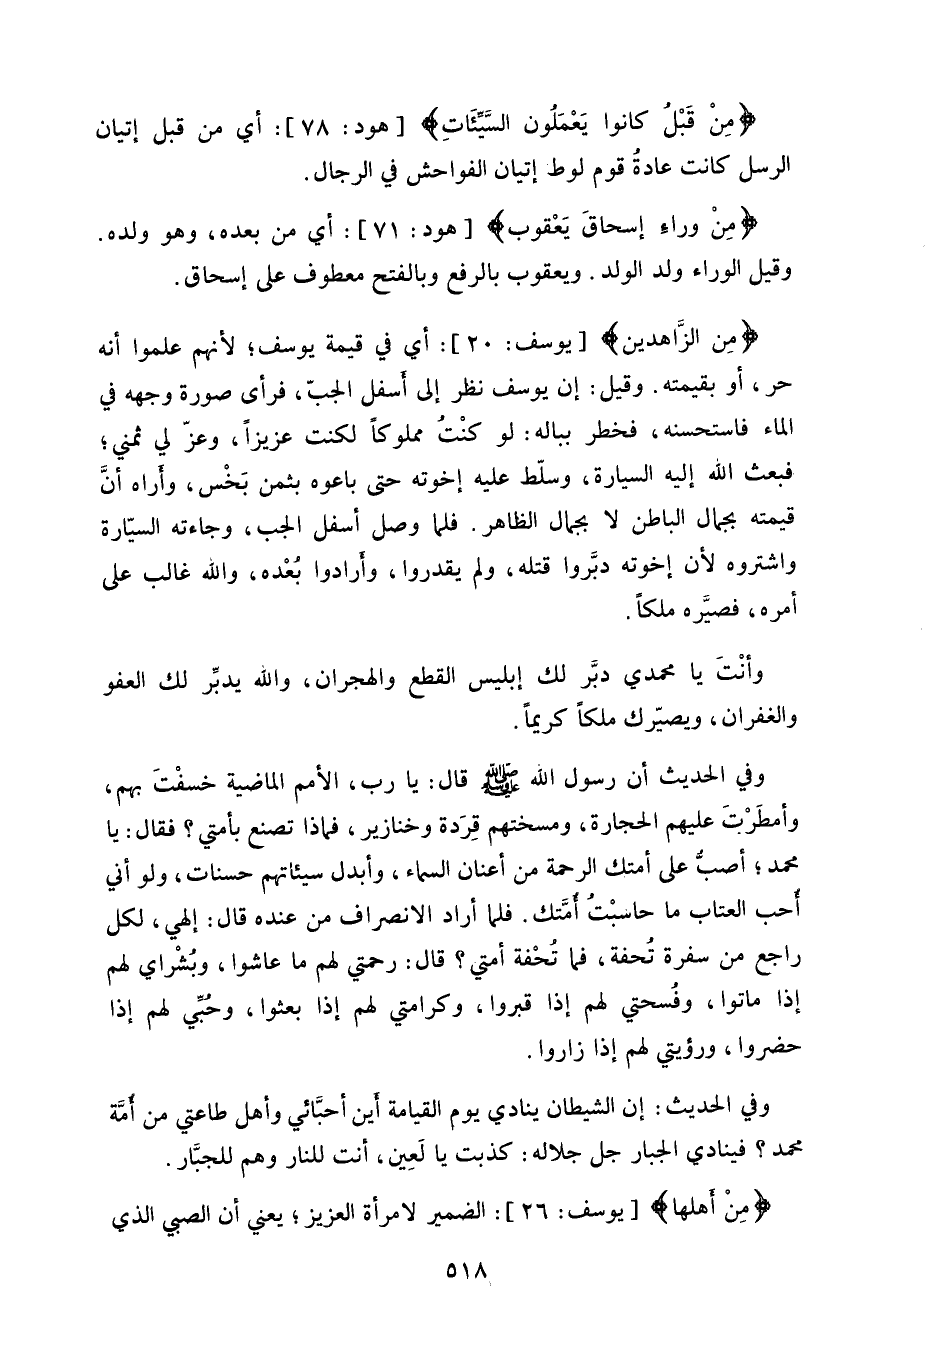 ﴿مِنْ قَبْلُ كانوا يَعْمَلُون السَّيِّئَاتِ﴾ [هود: ٧٨]: أي من قبل إتيان
الرسل كانت عادةُ قوم لوط إتيان الفواحش في الرجال.
﴿مِنْ وراءِ إسحاقَ يَعْقوب﴾ [هود: ٧١]: أي من بعده، وهو ولده.
وقيل الوراء ولد الولد. ويعقوب بالرفع وبالفتح معطوف على إسحاق.
﴿مِن الزَّاهدين﴾ [يوسف: ٢٠]: أي في قيمة يوسف؛ لأنهم علموا أنه
حر، أو بقيمته. وقيل: إن يوسف نظر إلى أَسفل الجبّ، فرأى صورة وجهه في
الماء فاستحسنه، فخطر بباله: لو كنْتُ مملوكاً لكنت عزيزاً، وعزّ لي ثمني؛
فبعث الله إليه السيارة، وسلّط عليه إخوته حتى باعوه بثمن بَخْس، وأَراه أنَّ
قيمته بجمال الباطن لا بجمال الظاهر. فلما وصل أسفل الجب، وجاءته السيّارة
واشتروه لأن إخوته دبَّروا قتله، ولم يقدروا، وأَرادوا بُعْده، والله غالب على
أمره، فصيَّره ملكاً.
وأنْتَ يا محمدي دبَّر لك إبليس القطع والهجران، والله يدبِّر لك العفو
والغفران، ويصيّرك ملكاً كريماً.
وفي الحديث أن رسول الله ﷺ قال: يا رب، الأمم الماضية خسفْتَ بهم،
وأمطَرْتَ عليهم الحجارة، ومسختهم قِرَدة وخنازير، فماذا تصنع بأمتي؟ فقال: يا
محمد؛ أصبُّ على أمتك الرحمة من أعنان السماء، وأبدل سيئاتهم حسنات، ولو أني
أُحب العتاب ما حاسبْتُ أُمَّتك. فلما أراد الانصراف من عنده قال: إلهي، لكل
راجع من سفرة تُحفة، فما تُحْفة أمتي؟ قال: رحمتي لهم ما عاشوا، وبُشْراي لهم
إذا ماتوا، وفُسحتي لهم إذا قبروا، وكرامتي لهم إذا بعثوا، وحُبِّي لهم إذا
حضروا، ورؤيتي لهم إذا زاروا.
وفي الحديث: إن الشيطان ينادي يوم القيامة أَين أحبَّائي وأهل طاعتي من أُمَّة
محمد؟ فينادي الجبار جل جلاله: كذبت يا لَعِين، أنت للنار وهم للجبَّار.
﴿مِنْ أَهلها﴾ [يوسف: ٢٦]: الضمير لامرأة العزيز؛ يعني أن الصبي الذي
٥١٨